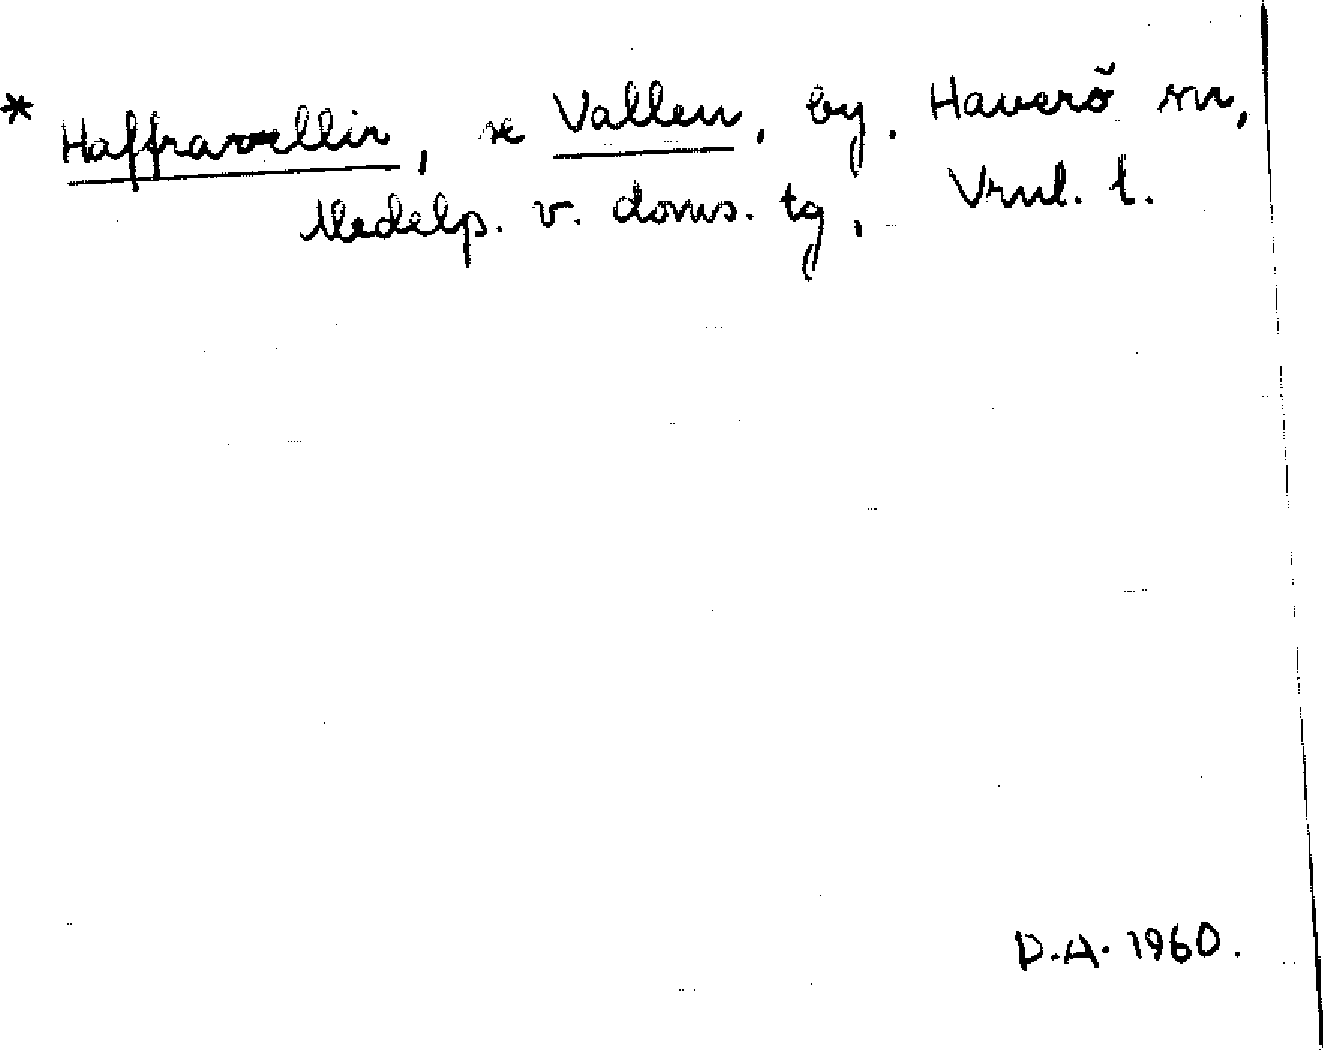 * Haffravællir, se Vallen, by. Haverö sn,
Medelp. v. doms. tg, Vrnl. l.
D.A. 1960.